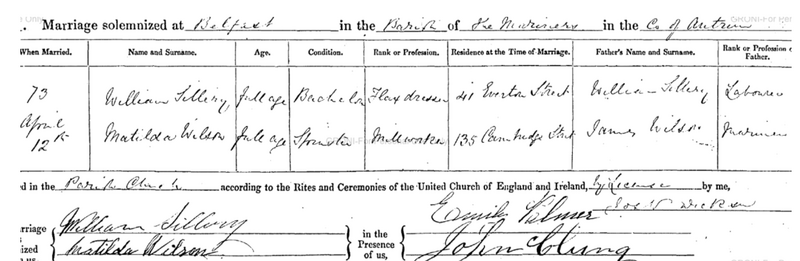 Marriage solemnized at Belfast in the Parish of The Mariners in the Co of Antrim
When Married. Name and Surname. Age. Condition. Rank or Profession. Residence at the Time of Marriage. Father's Name and Surname. Rank or Profession of Father.
73 William Sillery, full age Bachelor Flaxdresser 41 Everton Street William Sillery Labourer
April 12th Matilda Wilson full age Spinster Millworker 135 Cambridge Street James Wilson Mariner
ed in the Parish Church according to the Rites and Ceremonies of the United Church of England and Ireland, by License by me,
Dickson
William Sillery Emily Palmer
arriage
in the
Matilda Wilson Presence John Clung
ized
of us,